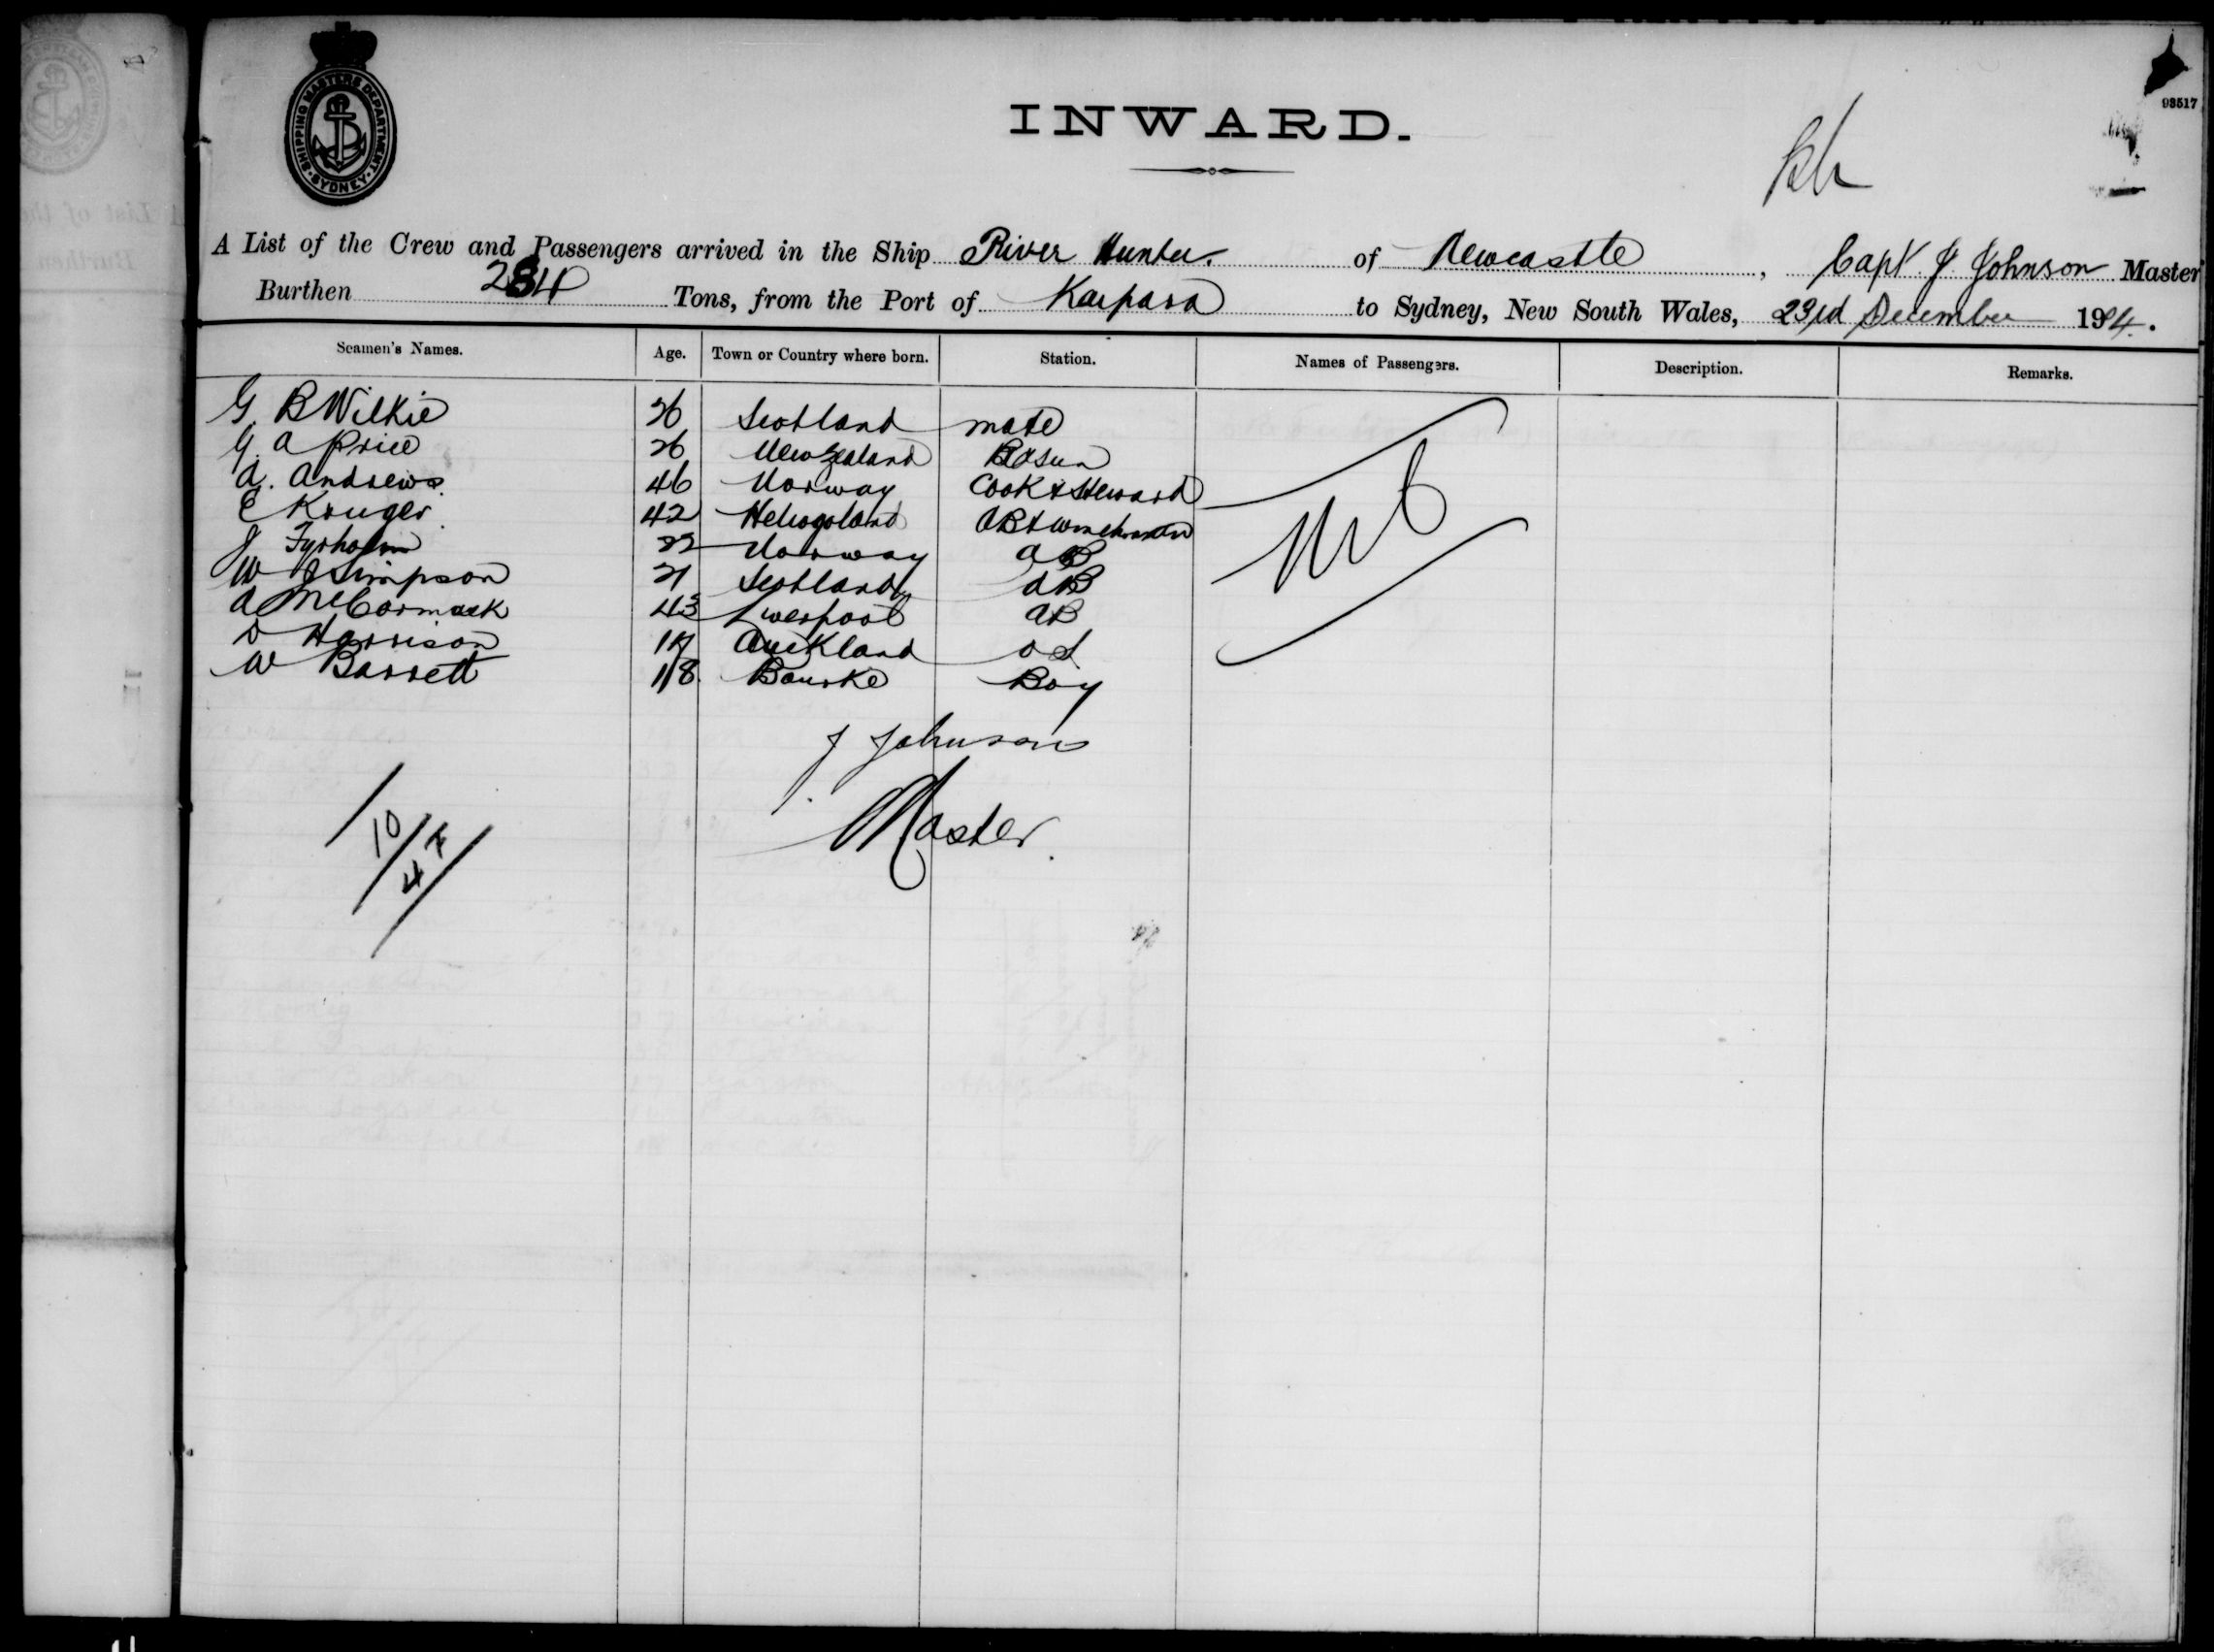 SHIPPING MASTERS DEPARTMENT
SYDNEY
93517
INWARD.
A List of the Crew and Passengers arrived in the Ship River Hunter. of Newcastle, Capt J. Johnson Master
Burthen 284 Tons, from the Port of Kaipara to Sydney, New South Wales, 23rd December 1904.
Seamen's Names. Age. Town or Country where born. Station. Names of Passengers. Description. Remarks.
G. B Wilkie 26 Scotland mate
G. A Price 26 New Zealand Bosun
A. Andrews 46 Norway Cook & Steward
E Kruger 42 Heliogoland AB & Winchman
J Fyrholm 22 Norway AB
W J Simpson 21 Scotland AB
A McCormack 43 Liverpool AB
D Harrison 17 Auckland OS
W Barrett 18 Bourke Boy
Nil
J Johnson
Master.
10/47